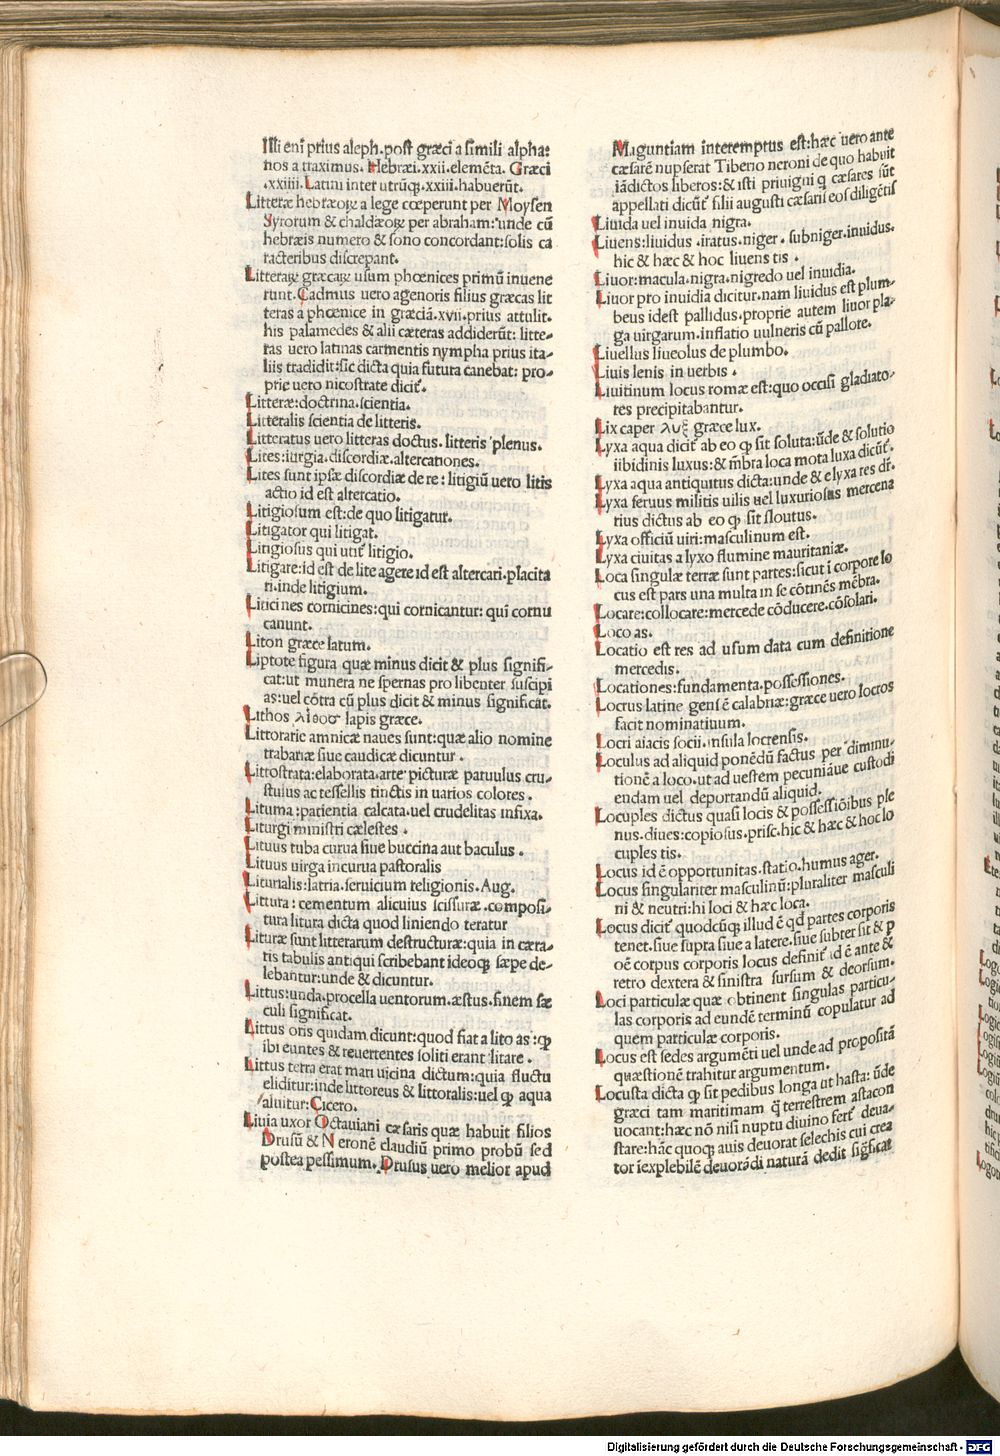 Illi enī prius aleph.post græci a simili alpha:
nos a traximus. Hebræi.xxii.elemēta. Græci
.xxiiii. Latini inter utrūqꝫ.xxiii.habuerūt.
Litteræ hebræoꝝ a lege cœperunt per Moysen
Syrorum & chaldæoꝝ per abraham:unde cū
hebræis numero & sono concordant:solis ca
racteribus discrepant.
Litteraꝝ græcaꝝ usum phœnices primū inuene
runt.Cadmus uero agenoris filius græcas lit
teras a phœnice in græciā.xvii.prius attulit.
his palamedes & alii cæteras addiderūt: litte-
ras uero latinas carmentis nympha prius ita-
liis tradidit:sic dicta quia futura canebat: pro-
prie uero nicostrate dicit̄.
Litteræ:doctrina.scientia.
Litteralis scientia de litteris.
Litteratus uero litteras doctus. litteris plenus.
Lites:iurgia.discordiæ.altercationes.
Lites sunt ipsæ discordiæ de re: litigiū uero litis
actio id est altercatio.
Litigiosum est:de quo litigatur.
Litigator qui litigat.
Litigiosus qui utit̄ litigio.
Litigare:id est de lite agere id est altercari.placita
ri.inde litigium.
Liticines cornicines:qui cornicantur: qui cornu
canunt.
Liton græce latum.
Liptote figura quæ minus dicit & plus signifi-
cat:ut munera ne spernas pro libenter suscipi
as:uel cōtra cū plus dicit & minus significat.
Lithos λίθοσ lapis græce.
Littorarie amnicæ naues sunt:quæ alio nomine
trabariæ siue caudicæ dicuntur.
Littostrata:elaborata.arte picturæ paruulus cru-
stulus ac tessellis tinctis in uarios colores.
Lituma:patientia calcata.uel crudelitas infixa.
Liturgi ministri cælestes.
Lituus tuba curua siue buccina aut baculus.
Lituus uirga incurua pastoralis
Liturialis:latria.seruicium religionis. Aug.
Littura: cementum alicuius scissuræ.composi-
tura litura dicta quod liniendo teratur
Lituræ sunt litterarum destructuræ:quia in cæra-
tis tabulis antiqui scribebant ideoqꝫ sæpe de-
lebantur:unde & dicuntur.
Littus:unda.procella uentorum.æstus.finem sæ
culi significat.
Littus oris quidam dicunt:quod fiat a lito as:ꝙ
ibi euntes & reuertentes soliti erant litare.
Littus terra erat mari uicina dictum:quia fluctu
eliditur:inde littoreus & littoralis:uel ꝙ aqua
aluitur:Cicero.
Liuia uxor Octauiani cæsaris quæ habuit filios
Drusū & Neronē claudiū primo probū sed
postea pessimum. Drusus uero melior apud
Maguntiam interemptus est:hæc uero ante
cæsarē nupserat Tiberio neroni de quo habuit
iādictos liberos:& isti priuigni q̄ cæsares sūt
appellati dicūt̄ filii augusti cæsaris eos diligētis
Liuida uel inuida nigra.
Liuens:liuidus.iratus.niger. subniger.inuidus.
hic & hæc & hoc liuens tis.
Liuor:macula.nigra.nigredo uel inuidia.
Liuor pro inuidia dicitur.nam liuidus est plum-
beus idest pallidus.proprie autem liuor pla-
ga uirgarum.inflatio uulneris cū pallore.
Liuellus liueolus de plumbo.
Liuis lenis in uerbis.
Liuitinum locus romæ est:quo occisi gladiato-
res precipitabantur.
Lix caper λυξ græce lux.
Lyxa aqua dicit̄ ab eo ꝙ sit soluta:ūde & solutio
iibidinis luxus:& mēbra loca mota luxa dicūt̄.
Lyxa aqua antiquitus dicta:unde & elyxa res dr̄.
Lyxa feruus militis uilis uel luxuriosus mercena
rius dictus ab eo ꝙ sit sloutus.
Lyxa officiū uiri:masculinum est.
Lyxa ciuitas a lyxo flumine mauritaniæ.
Loca singulæ terræ sunt partes:sicut i corpore lo
cus est pars una multa in se cōtinēs mēbra.
Locare:collocare:mercede cōducere.cōsolari.
Loco as.
Locatio est res ad usum data cum definitione
mercedis.
Locationes:fundamenta.possessiones.
Locrus latine gens ē calabriæ:græce uero locros
facit nominatiuum.
Locri aiacis socii.insula locrensis.
Loculus ad aliquid ponēdū factus per diminu-
tionē a loco.ut ad uestem pecuniāue custodi
endam uel deportandū aliquid.
Locuples dictus quasi locis & possessiōibus ple
nus.diues:copiosus.prisc.hic & hæc & hoc lo
cuples tis.
Locus id ē opportunitas.statio.humus ager.
Locus singulariter masculinū:pluraliter masculi
ni & neutri:hi loci & hæc loca.
Locus dicit̄ quodcūqꝫ illud ē qd̄ partes corporis
tenet.siue supra siue a latere.siue subter sit & p
oē corpus corporis locus definit̄ id ē ante &
retro dextera & sinistra sursum & deorsum.
Loci particulæ quæ obtinent singulas particu-
las corporis ad eundē terminū copulatur ad
quem particulæ corporis.
Locus est sedes argumēti uel unde ad propositā
quæstionē trahitur argumentum.
Locusta dicta ꝙ sit pedibus longa ut hasta: ūde
græci tam maritimam q̄ terrestrem astacon
uocant:hæc nō nisi nuptu diuino fert̄ deua-
stare:hāc quoqꝫ auis deuorat selechis cui crea
tor īexplebilē deuorādi naturā dedit significat

Digitalisierung gefördert durch die Deutsche Forschungsgemeinschaft - DFG